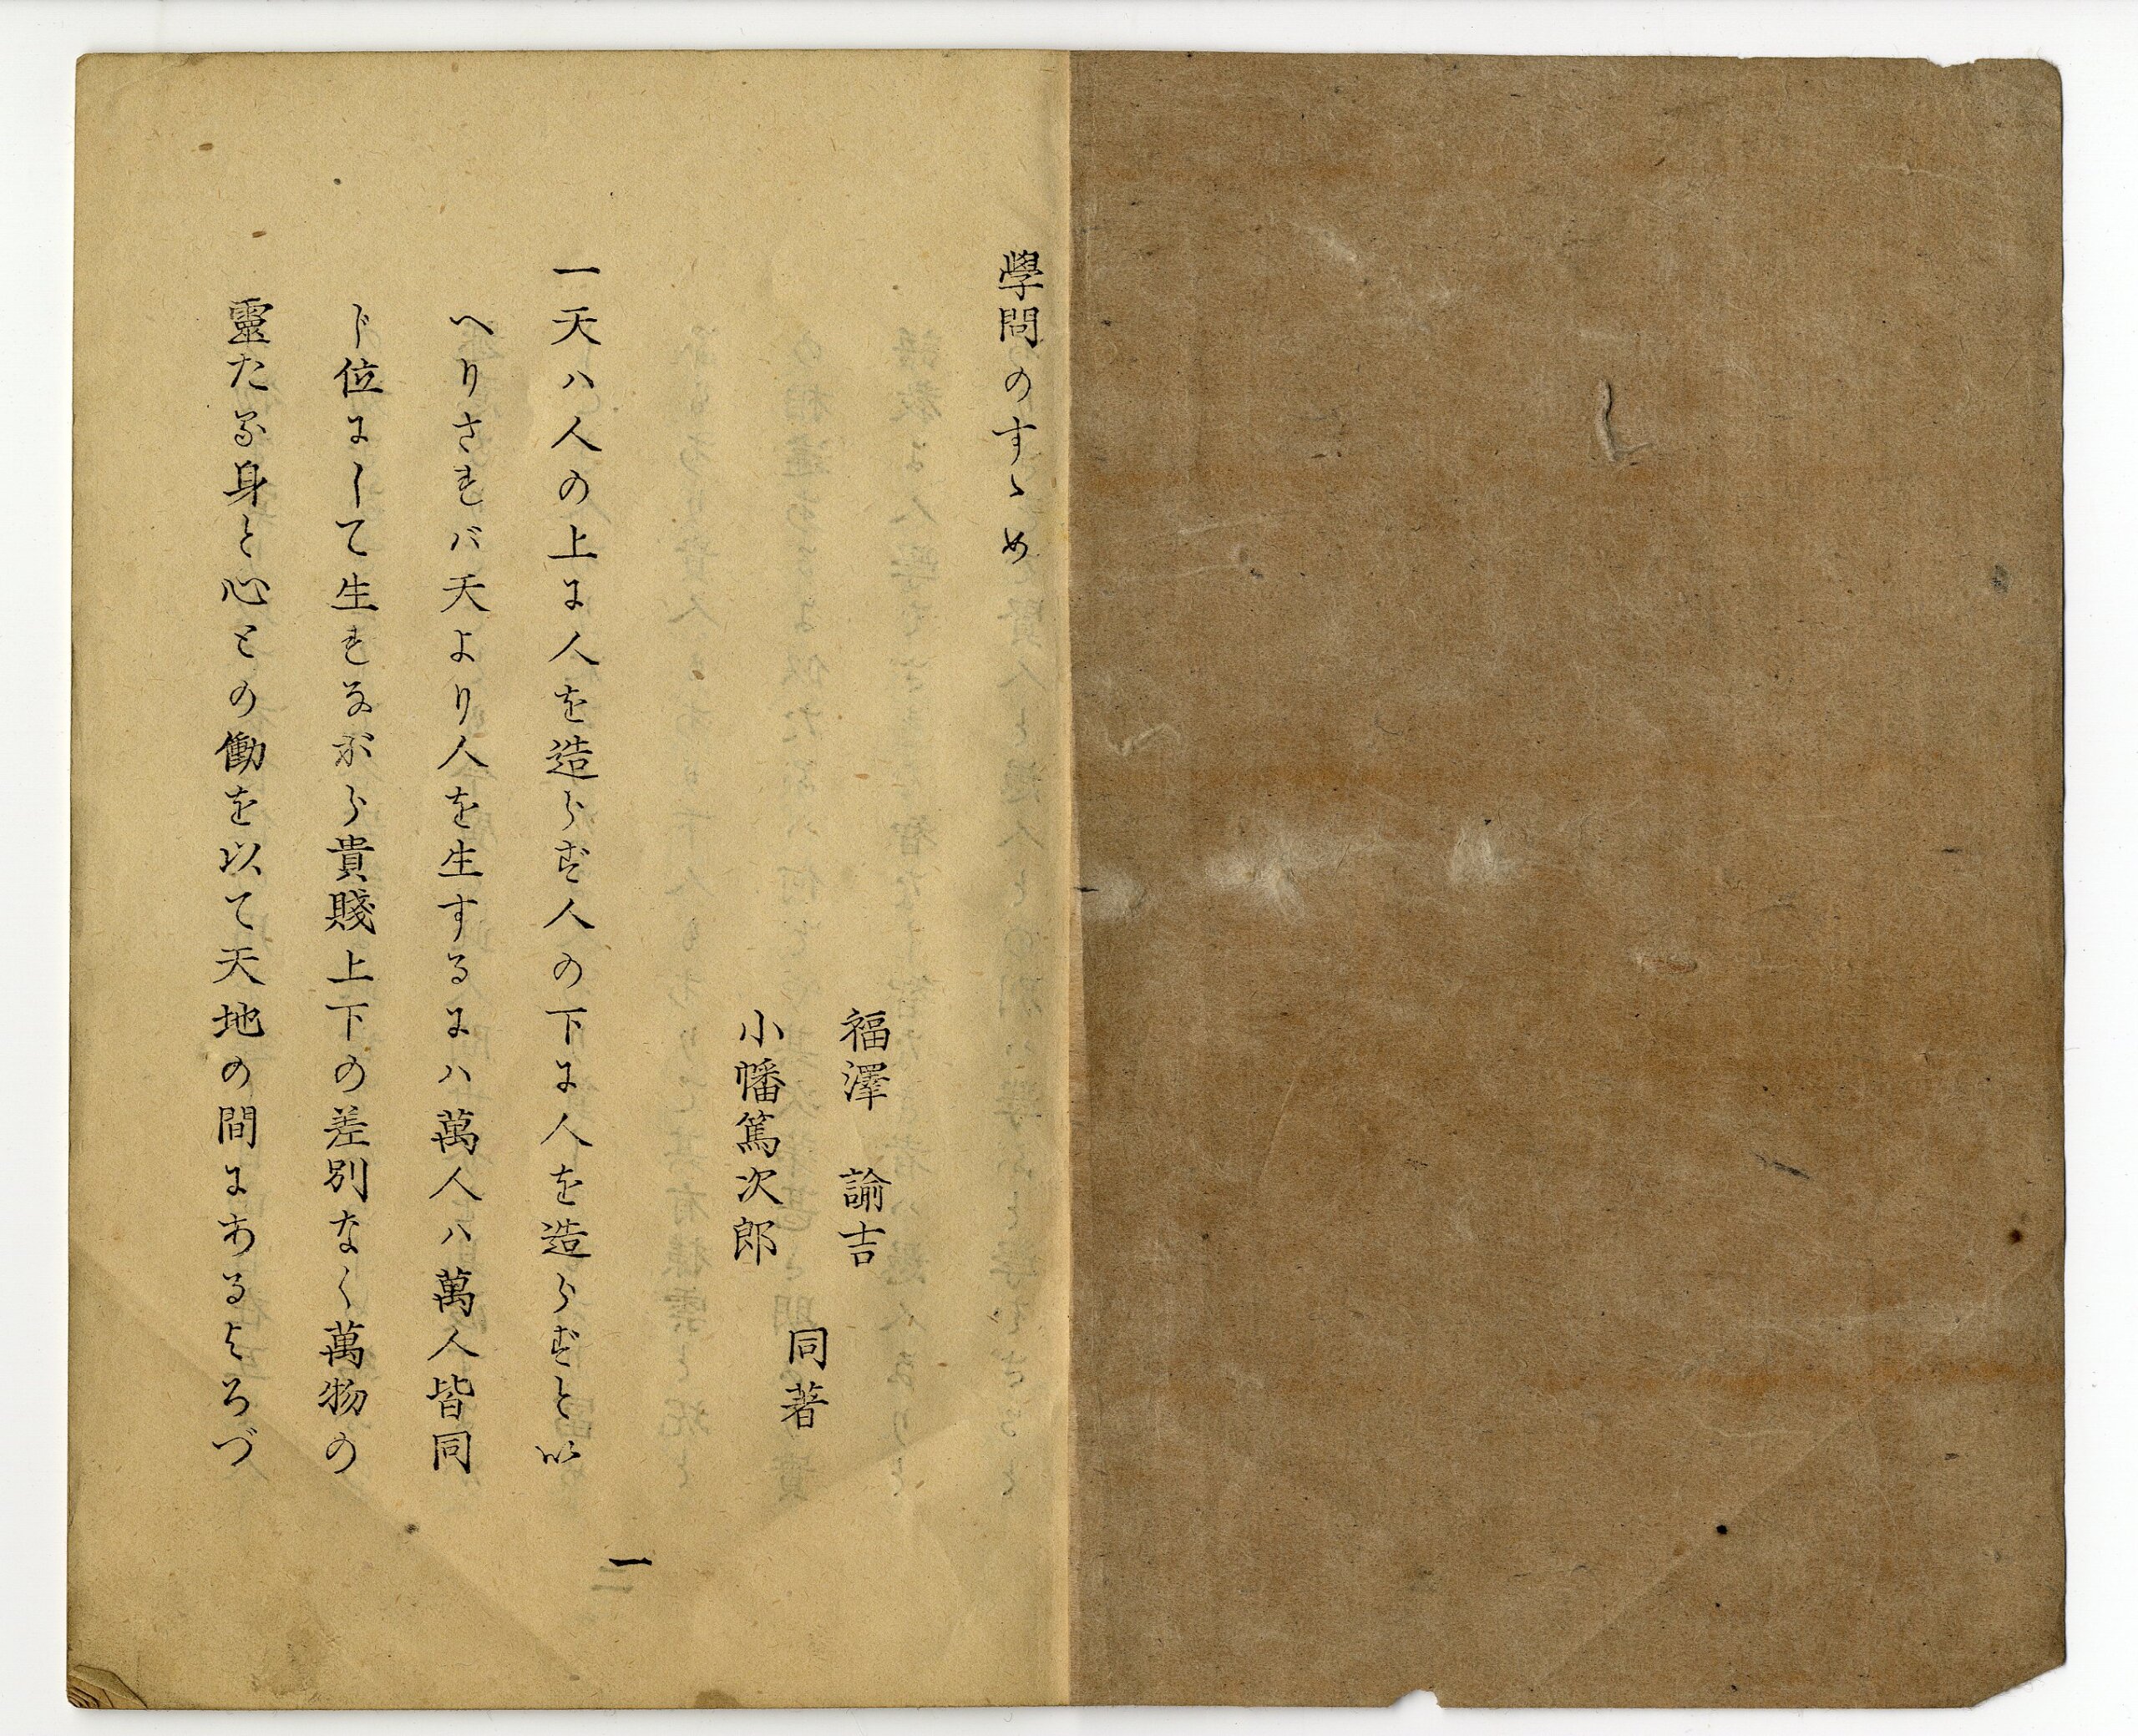 學問のすゝめ
福澤 諭吉
小幡篤次郎
同著
一天ハ人の上に人を造らず人の下に人を造らずと以
へりさればバ天より人を生するにハ萬人ハ萬人皆同
じ位にして生れながら貴賤上下の差別なく萬物の
靈たる身と心との働を以て天地の間にあるよろづ
一